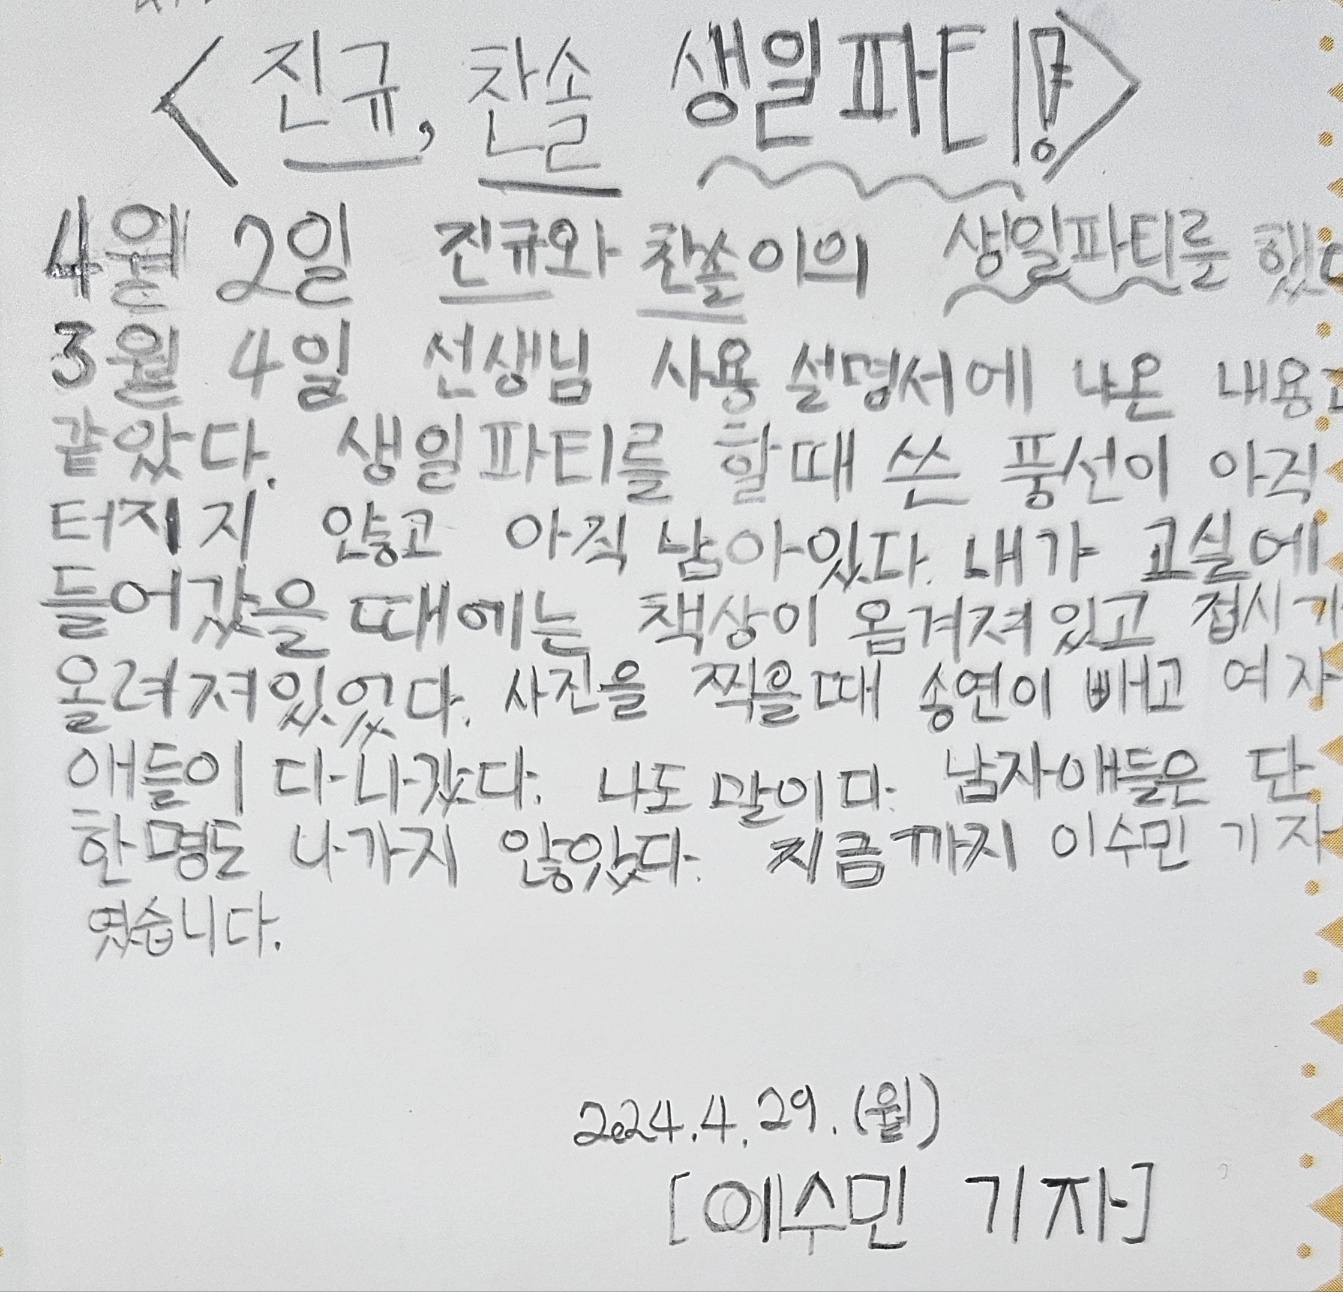 <진규, 찬솔 생일파티!>
4월 2일 진규와 찬솔이의 생일파티를 했다
3월 4일 선생님 사용 설명서에 나온 내용과
같았다. 생일파티를 할때 쓴 풍선이 아직
터지지 않고 아직 남아있다. 내가 교실에
들어갔을 때에는 책상이 옴겨져있고 접시가
올려져있었다. 사진을 찍을때 송연이 빼고 여자
애들이 다나갔다. 나도 말이다. 남자애들은 단
한명도 나가지 않았다. 지금까지 이수민 기자
였습니다.
2024.4.29.(월)
[이수민 기자]